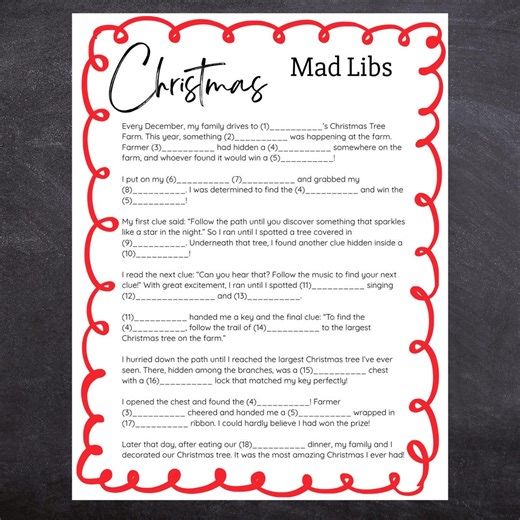 Christmas Mad Libs
Every December, my family drives to (1)__________'s Christmas Tree
Farm. This year, something (2)__________ was happening at the farm.
Farmer (3)__________ had hidden a (4)__________ somewhere on the
farm, and whoever found it would win a (5)__________!
I put on my (6)__________ (7)__________ and grabbed my
(8)__________. I was determined to find the (4)__________ and win the
(5)__________!
My first clue said: "Follow the path until you discover something that sparkles
like a star in the night." So I ran until I spotted a tree covered in
(9)__________. Underneath that tree, I found another clue hidden inside a
(10)__________!
I read the next clue: "Can you hear that? Follow the music to find your next
clue!" With great excitement, I ran until I spotted (11)__________ singing
(12)_______________ and (13)__________.
(11)__________ handed me a key and the final clue: "To find the
(4)__________, follow the trail of (14)__________ to the largest
Christmas tree on the farm."
I hurried down the path until I reached the largest Christmas tree I've ever
seen. There, hidden among the branches, was a (15)__________ chest
with a (16)__________ lock that matched my key perfectly!
I opened the chest and found the (4)__________! Farmer
(3)__________ cheered and handed me a (5)__________ wrapped in
(17)__________ ribbon. I could hardly believe I had won the prize!
Later that day, after eating our (18)__________ dinner, my family and I
decorated our Christmas tree. It was the most amazing Christmas I ever had!